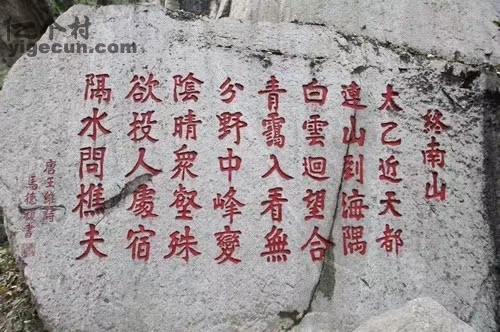 终南山
太乙近天都
連山到海隅
白雲迴望合
青靄入看無
分野中峰變
陰晴眾壑殊
欲投人處宿
隔水問樵夫
唐王維詩
亿个村
yigecun.com